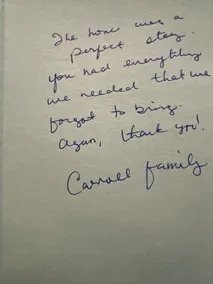 The home was a
perfect stay.
you had everything
we needed that we
forgot to bring.
Again, thank you!
Carroll family